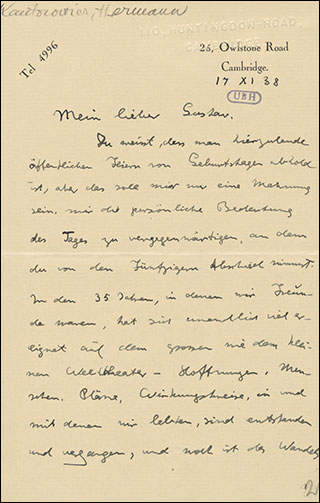 Kantorowicz, Hermann
110, HUNTINGDON ROAD,
CAMBRIDGE
Tel 4996
25, Owlstone Road
Cambridge.
17 XI 38
UBH
Mein lieber Gustav.
Du weisst, dass man hierzulande
öffentlichen Feiern von Geburtstagen abhold
ist, aber das soll mir nur eine Mahnung
sein, mir die persönliche Bedeutung
des Tages zu vergegenwärtigen, an dem
du von den Fünfzigern Abschied nimmst.
In den 35 Jahren, in denen wir Freun-
de waren, hat sich unendlich viel er-
eignet auf dem grossen wie dem klei-
nen Welttheater – Hoffnungen, Men-
schen, Pläne, Wirkungskreise, in und
mit denen wir lebten, sind entstanden
und vergangen, und noch ist des Wandels